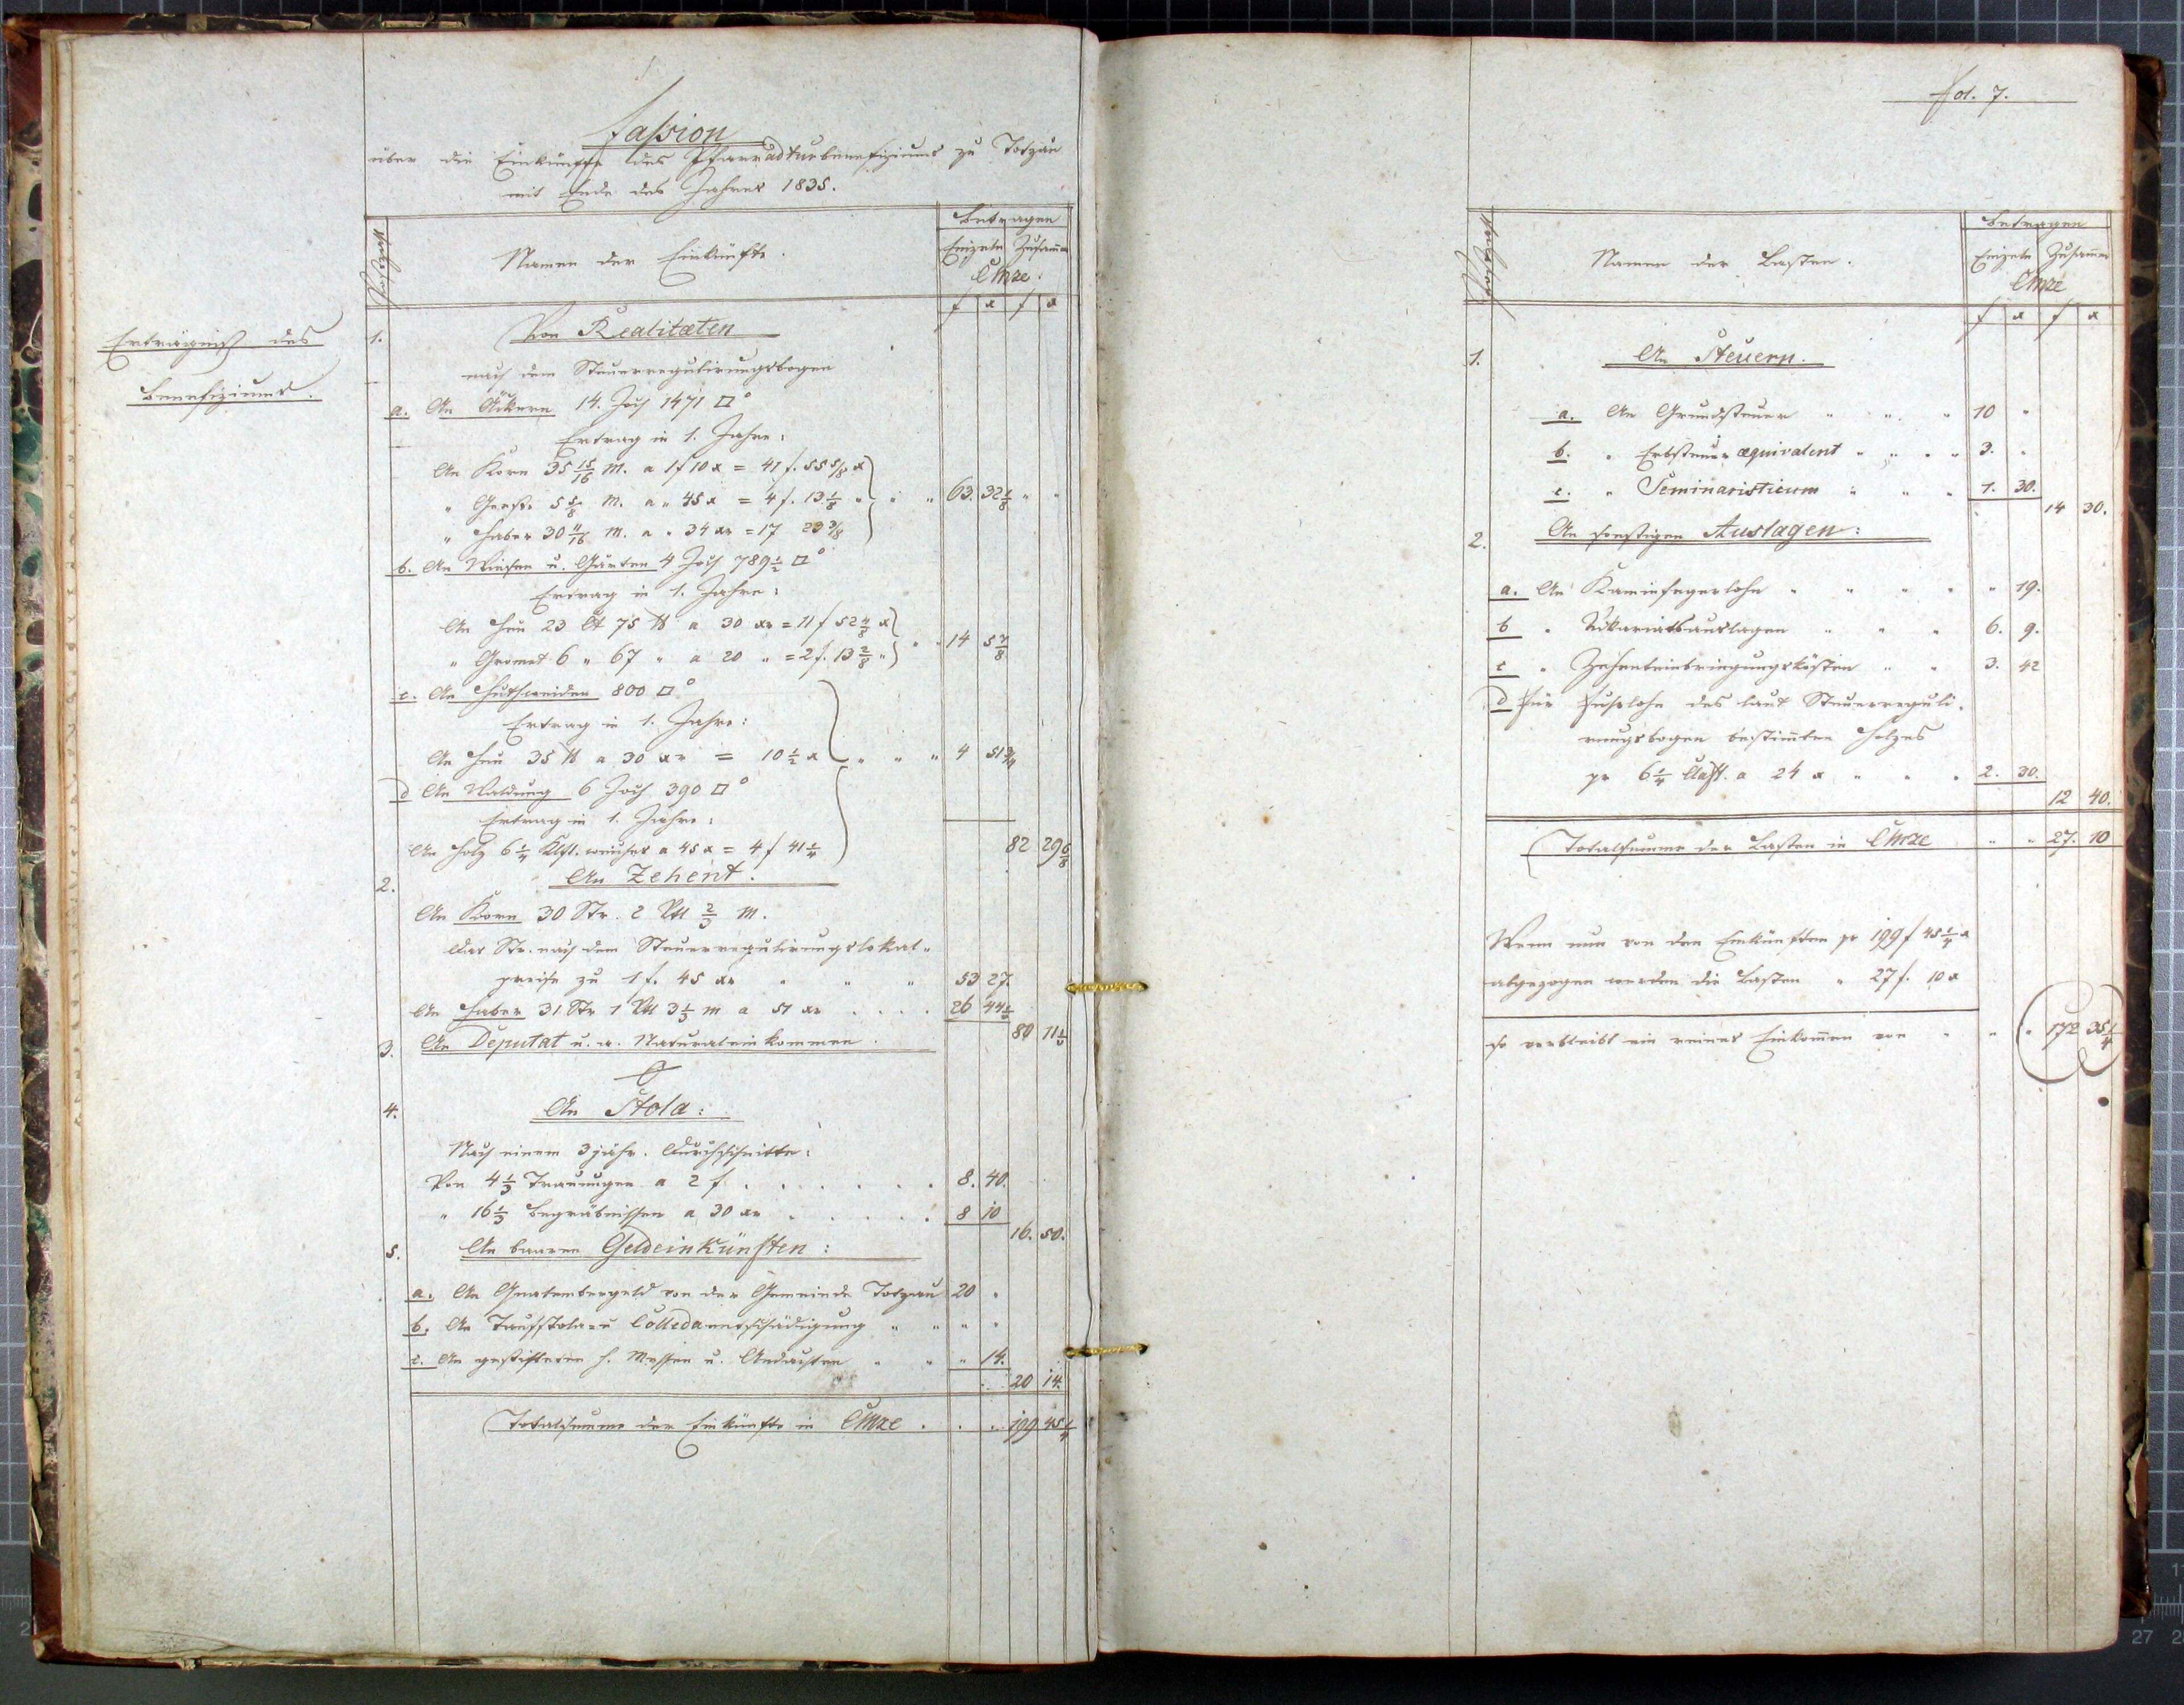 Fassion
über die Einkünfte des Pfarradturbenefiziums zu Totzau
mit Ende des Jahres 1835.
Erträgniß des
Benefiziums.
Postzahl
Namen der Einkünfte.
Betragen
Einzeln Zusamm
CMze.
f x f x
1. Von Realitæten
nach dem Steuerregulirungsbogen
a. An Äckern 14. Joch 1471 □°
Ertrag in 1. Jahre:
An Korn 35 15/16 M. a 1f 10x = 41 f. 55 5/8 x
" Gerste 5 5/8 M. a " 45 x = 4 f. 13 1/8 " " " 63. 32 1/8 " "
" Haber 30 11/16 M. a " 34 xr = 17 23 3/8
b. An Wiesen u. Gärten 4 Joch 789 1/2 □°
Ertrag in 1. Jahre:
An Heu 23 Ct 75 ℔ a 30 xr = 11 f 52 4/8 x
" Gromet 6 " 67 " a 20 " = 2 f. 13 2/8 " " " 14 5 7/8
c. An Huthweiden 800 □°
Ertrag in 1. Jahre:
An Heu 35 ℔ a 30 xr = 10 1/2 x " " " 4 51 3/4
d An Waldung 6 Joch 390 □°
Ertrag in 1. Jahre:
An Holz 6 1/4 Klft. weiches a 45 x = 4 f 41 1/4
82 29 6/8
2. An Zehent.
An Korn 30 Str. 2 Vtl 2/3 M.
Das Str. nach dem Steuerregulirungslokal-
preise zu 1 f. 45 xr " " " 53 27.
An Haber 31 Str 1 Vtl 3 1/3 m a 51 xr . . . . 26 44 1/3
80 11 1/3
3. An Deputat u. a. Naturaleinkommen.
4. An Stola:
Nach einem 3jähr. Durchschnitte:
Von 4 1/3 Trauungen a 2 f. . . . . . . 8. 40.
" 16 1/3 Begräbnissen a 30 xr . . . . . 8 10
16. 50.
5. An baaren Geldeinkünften:
a. An Quatembergeld von der Gemeinde Totzau 20 "
b. An Taufstola- u Colledaentschädigung " " " "
c. An gestifteten h. Messen u. Andachten " " " 14.
20 14.
Totalsumme der Einkünfte in CMze . . . 199 45 1/4
fol. 7.
Postzahl
Namen der Lasten.
Betragen
Einzeln Zusamm
CMze
f x f x
1. An Steuern.
a. An Grundsteuer " " " 10 "
b. " Erbsteueræquivalent " " " " 3. "
c. " Seminaristicum " " " 1. 30.
14 30.
2. An sonstigen Auslagen:
a. An Kaminfegerlohn " " " " " 19.
b " Vikariatsauslagen " " " 6. 9.
c " Zehenteinbringungskösten " " 3. 42
d Für Fuhrlohn des laut Steuerreguli-
rungsbogen bestimten Holzes
pr 6 1/4 Claft. a 24 x " " " 2. 30.
12 40.
Totalsumme der Lasten in CMze " " 27. 10
Wenn nun von den Einkünften pr 199 f 45 1/4 x
abgezogen werden die Lasten " 27 f. 10 x
so verbleibt ein reines Einkomen von " " " 172 35 1/4